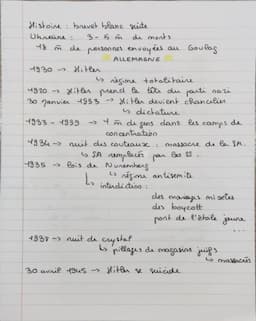 Histoire : brevet blanc suite
Ukraine : 3-5 m de morts
18 m de personnes envoyées au Goulag
ALLEMAGNE
1930 → Hitler
↳ régime totalitaire
1920 → Hitler prend la tête du parti nazi
30 janvier 1933 → Hitler devient chancelier
↳ dictature
1933 - 1939 → 1 m de gens dans les camps de
concentration
1934 → nuit des couteaux : massacre de la SA.
↳ SA remplacés par les SS.
1935 → lois de Nuremberg
↳ régime antisémite
↳ interdiction :
des mariages mixtes
des boycott
port de l'étoile jaune
1938 → nuit de crystal
↳ pillages de magasins juifs
↳ massacrés
30 avril 1945 → Hitler se suicide.